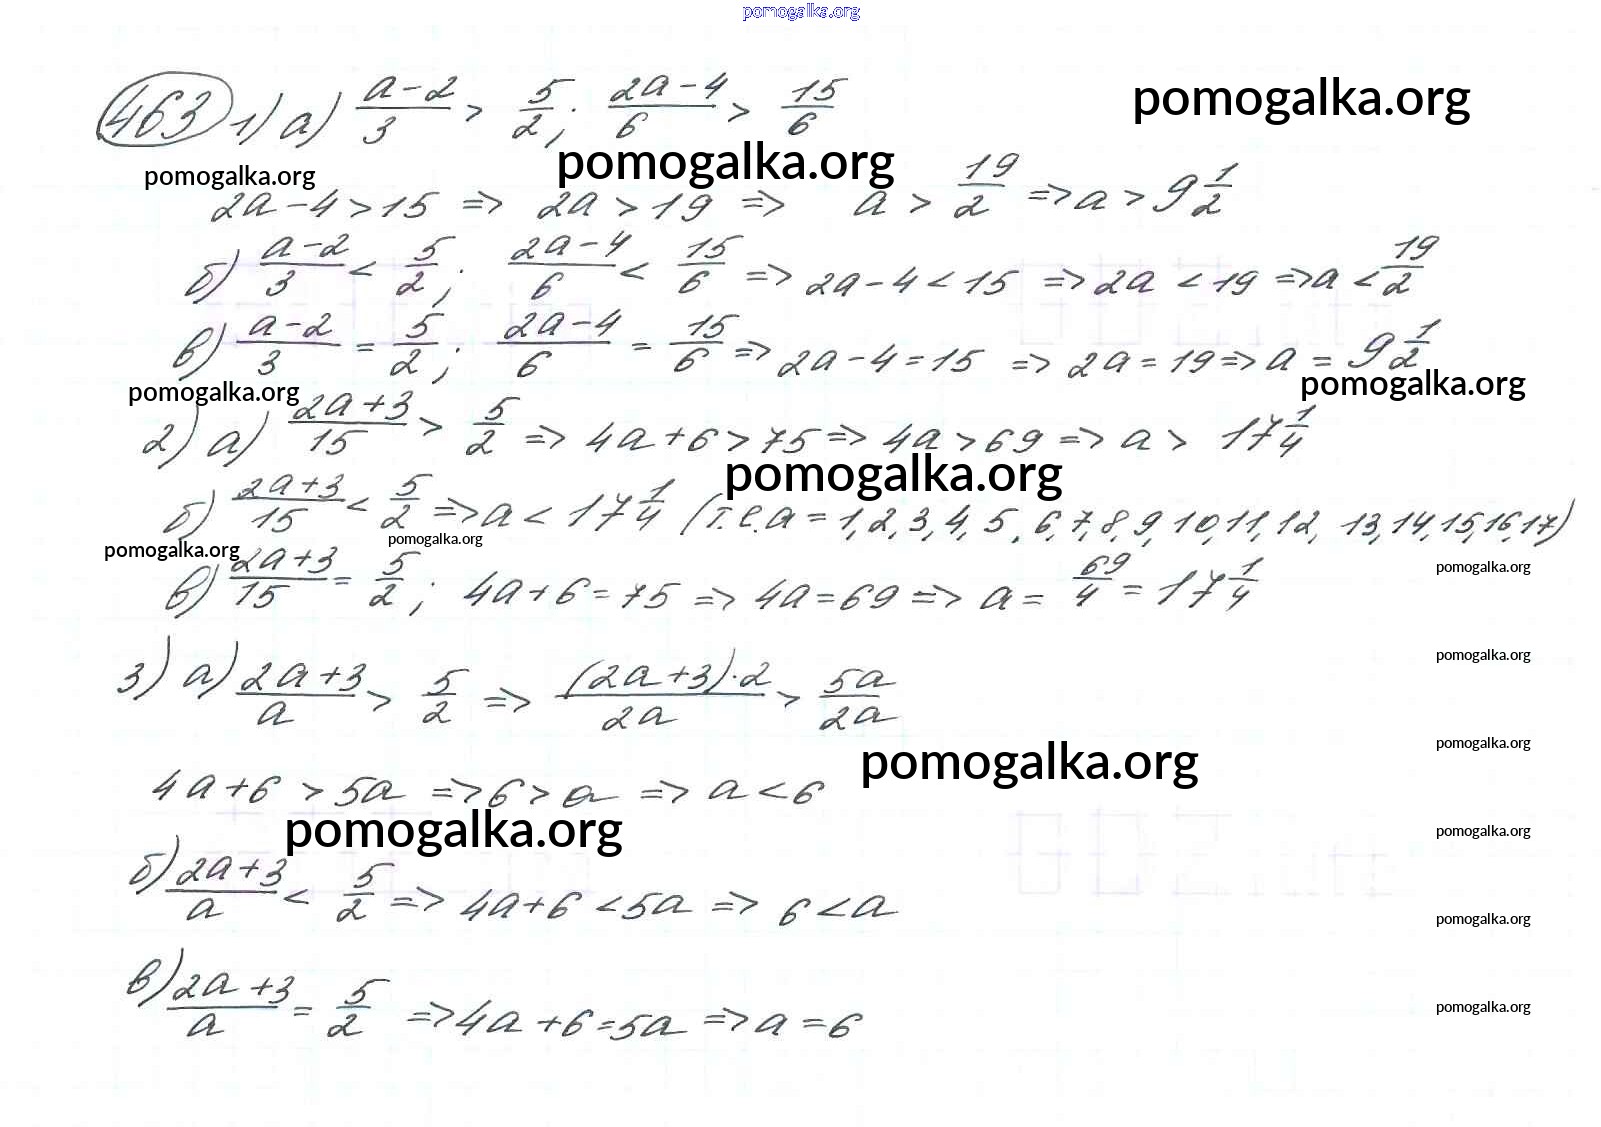 pomogalka.org
463 1) а) (a-2)/3 > 5/2; (2a-4)/6 > 15/6
pomogalka.org
pomogalka.org
pomogalka.org
2a-4>15 => 2a>19 => a > 19/2 => a > 9 1/2
б) (a-2)/3 < 5/2; (2a-4)/6 < 15/6 => 2a-4<15 => 2a<19 => a < 19/2
в) (a-2)/3 = 5/2; (2a-4)/6 = 15/6 => 2a-4=15 => 2a=19 => a = 9 1/2
pomogalka.org
pomogalka.org
2) а) (2a+3)/15 > 5/2 => 4a+6>75 => 4a>69 => a > 17 1/4
pomogalka.org
б) (2a+3)/15 < 5/2 => a < 17 1/4 (т.е. a = 1, 2, 3, 4, 5, 6, 7, 8, 9, 10, 11, 12, 13, 14, 15, 16, 17)
pomogalka.org
pomogalka.org
pomogalka.org
в) (2a+3)/15 = 5/2; 4a+6=75 => 4a=69 => a = 69/4 = 17 1/4
pomogalka.org
3) а) (2a+3)/a > 5/2 => ((2a+3)·2)/2a > 5a/2a
pomogalka.org
pomogalka.org
4a+6 > 5a => 6>a => a<6
pomogalka.org
pomogalka.org
б) (2a+3)/a < 5/2 => 4a+6<5a => 6<a
pomogalka.org
в) (2a+3)/a = 5/2 => 4a+6=5a => a=6
pomogalka.org